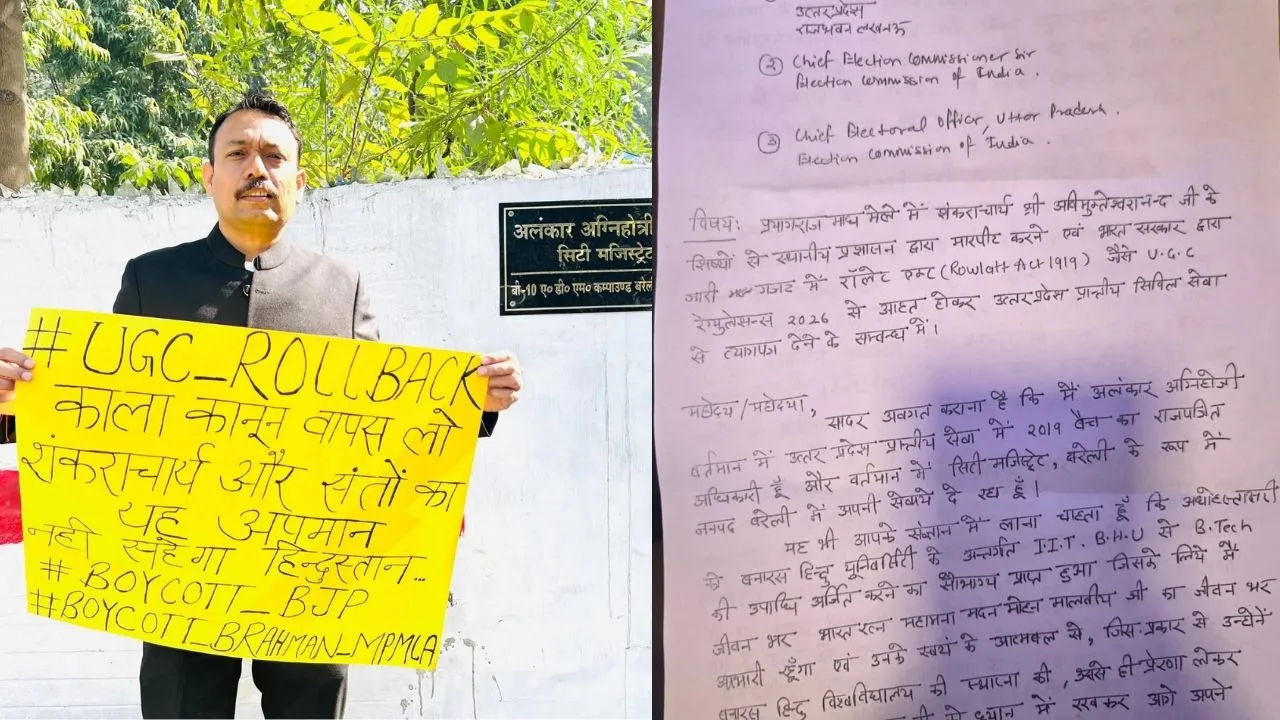 # UGC_ROLLBACK
काला कानून वापस लो
शंकराचार्य और संतों का
यह अपमान
नही सहेगा हिन्दुस्तान...
# BOYCOTT_BJP
#BOYCOTT_BRAHMAN_MPMLA
अलंकार अग्निहोत्री
सिटी मजिस्ट्रेट
बी-10 ए० डी० एम० कम्पाउण्ड बरेल
उत्तर प्रदेश
राजभवन लखनऊ
② Chief Election Commissioner Sir
Election Commission of India.
③ Chief Electoral Officer, Uttar Pradesh.
Election Commission of India.
विषय: प्रयागराज माघ मेले में शंकराचार्य श्री अविमुक्तेश्वरानन्द जी के
शिष्यों से स्थानीय प्रशासन द्वारा मारपीट करने एवं भारत सरकार द्वारा
जारी गजट में रॉलेट एक्ट (Rowlatt Act 1919) जैसे U.G.C
रेगुलेसन्स 2026 से आहत होकर उत्तर प्रदेश प्रान्तीय सिविल सेवा
से त्यागपत्र देने के सम्बन्ध में।
महोदय/महोदया,
सादर अवगत कराना है कि मैं अलंकार अग्निहोत्री
वर्तमान में उत्तर प्रदेश प्रान्तीय सेवा में 2019 बैच का राजपत्रित
अधिकारी हूँ और वर्तमान में सिटी मजिस्ट्रेट, बरेली के रूप में
जनपद बरेली में अपनी सेवायें दे रहा हूँ।
यह भी आपके संज्ञान में लाना चाहता हूँ कि अधोहस्ताक्षरी
को बनारस हिन्दु यूनिवर्सिटी के अन्तर्गत I.I.T. B.H.U से B.Tech
की उपाधि अर्जित करने का सौभाग्य प्राप्त हुआ जिसके लिये मैं
जीवन भर भारत रत्न महामना मदन मोहन मालवीय जी का जीवन भर
आभारी रहूँगा एवं उनके स्वयं के आत्मबल से, जिस प्रकार से उन्होनें
बनारस हिन्दु विश्वविद्यालय की स्थापना की, उससे ही प्रेरणा लेकर
में रखकर आगे अपने